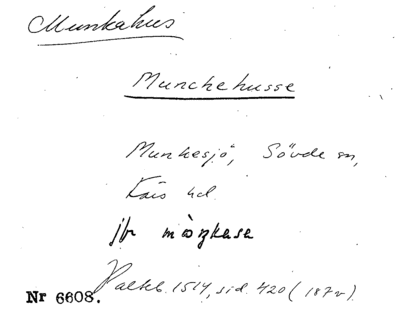 Munkahus
Munchehusse
Munkesjö, Sövde sn,
Färs hd.
jfr
Palteb. 1514, sid. 420 (187v).
Nr 6608.